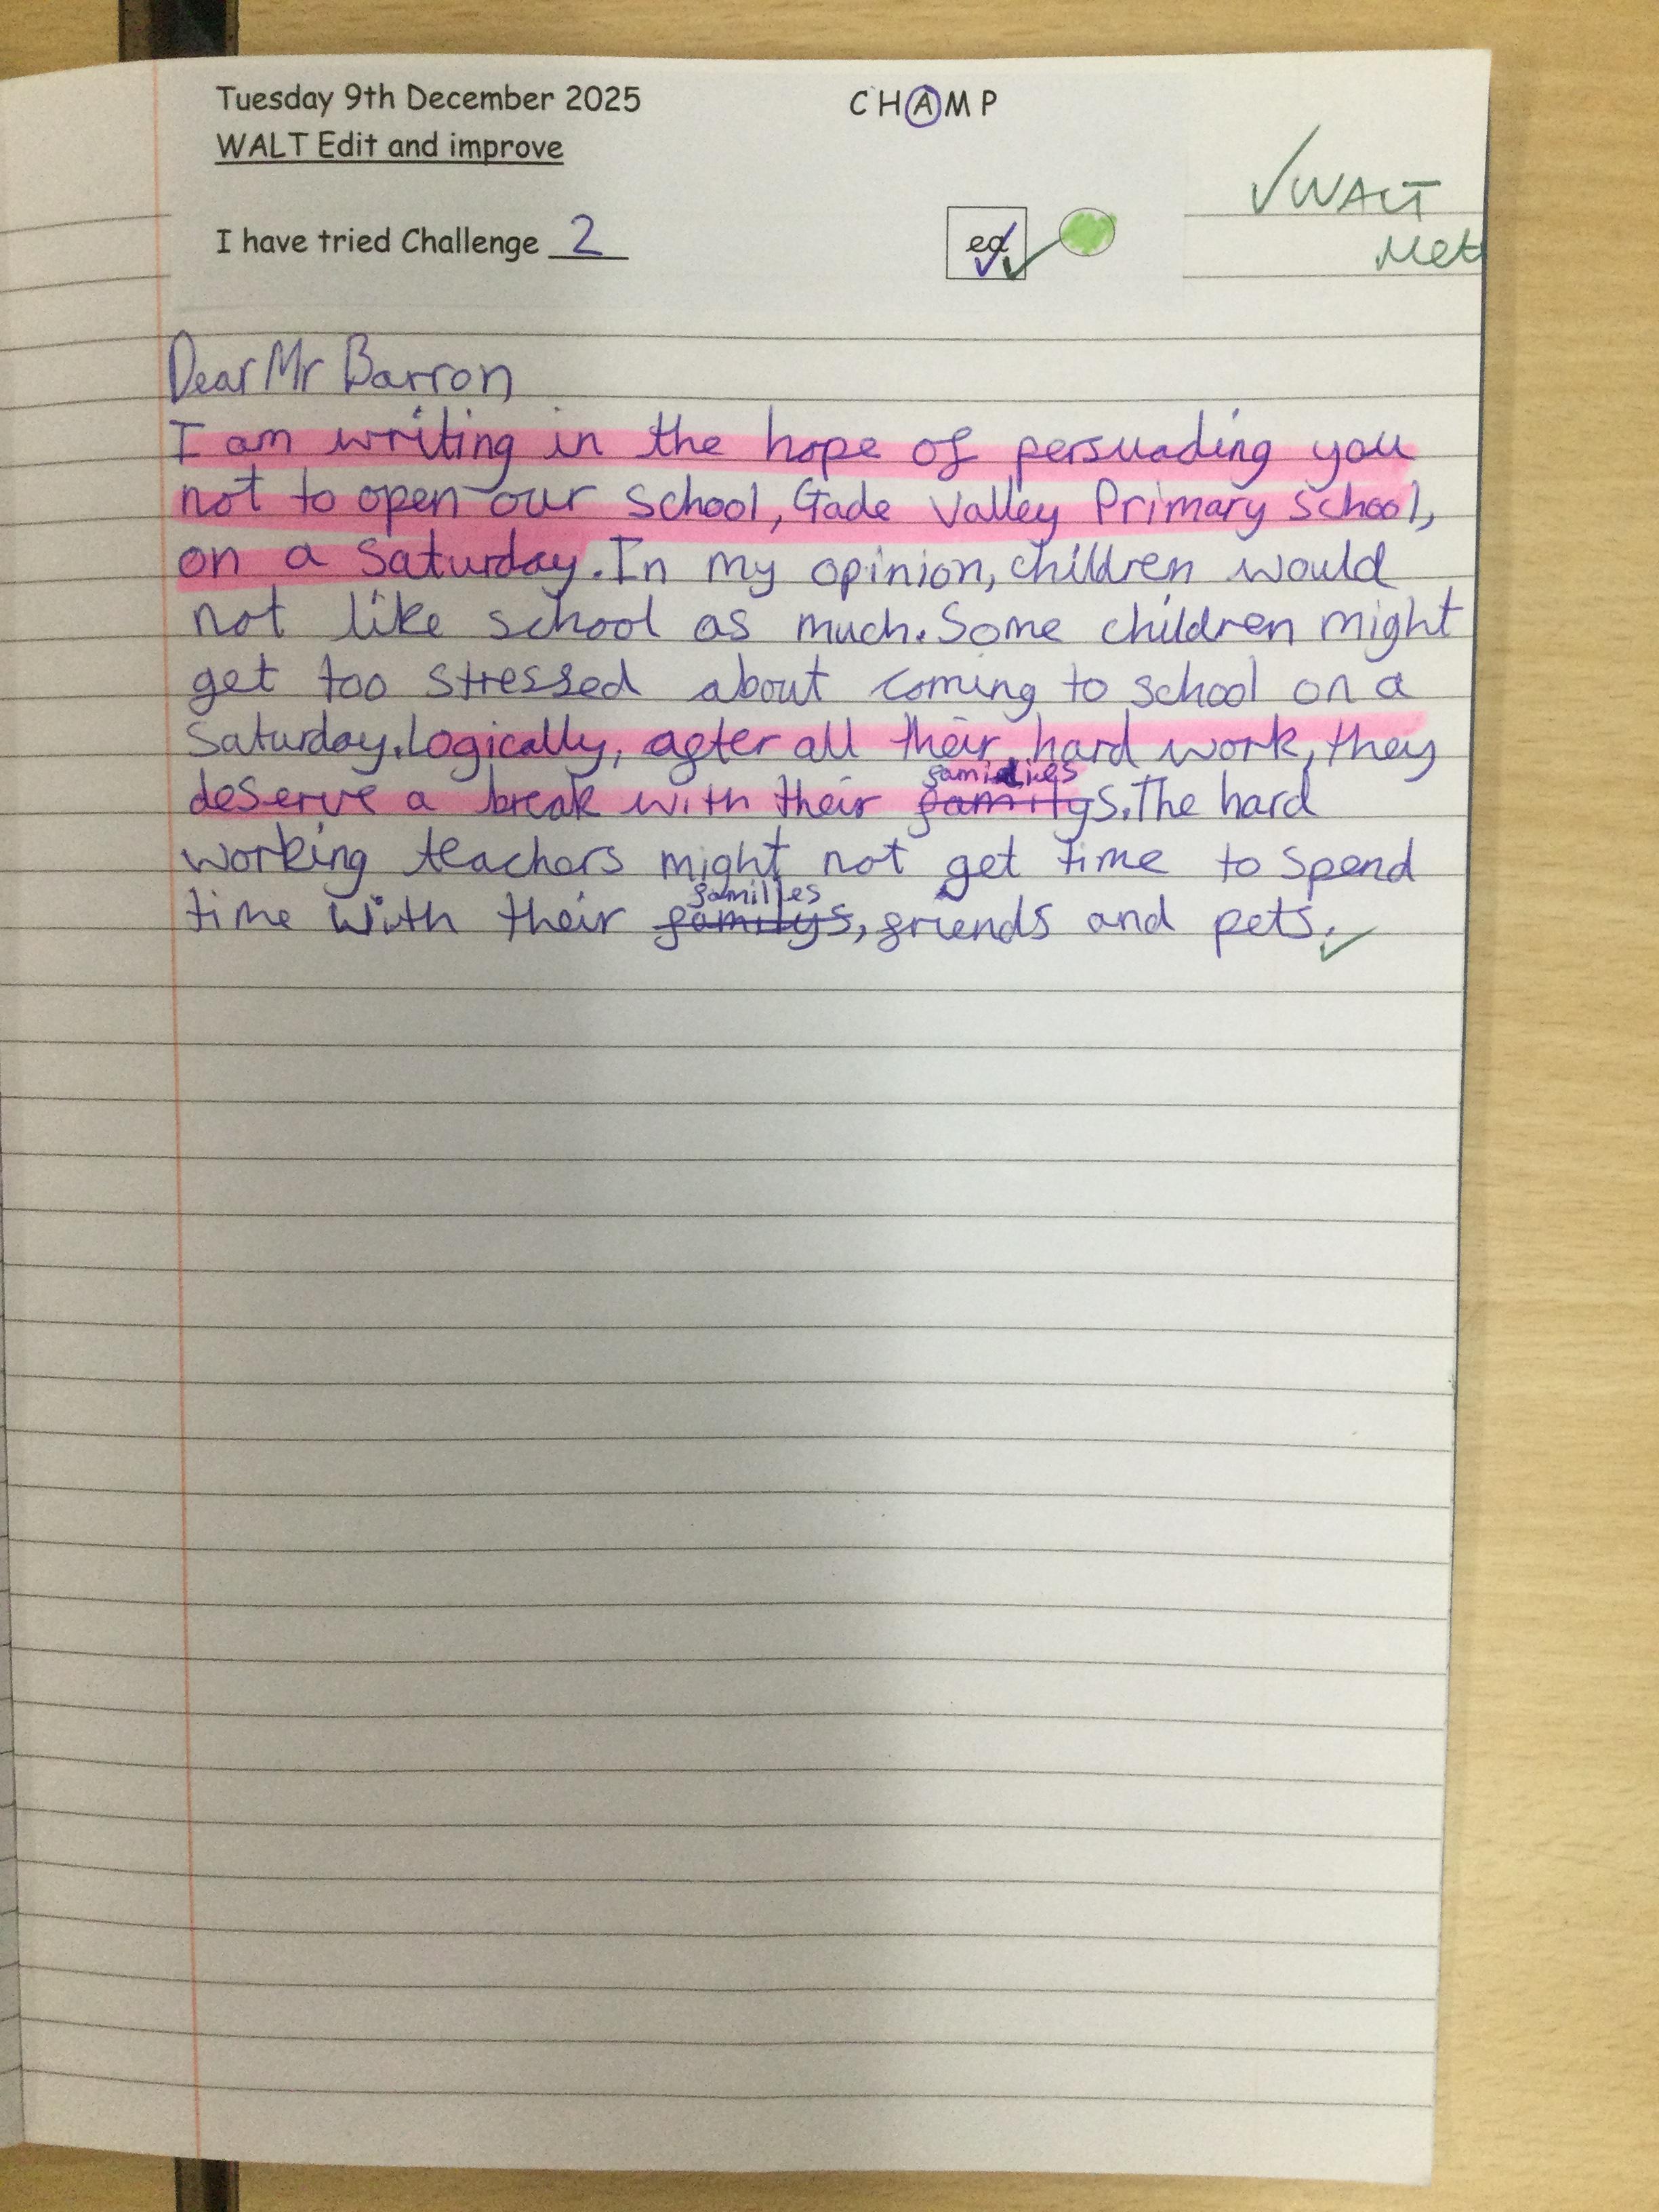 Tuesday 9th December 2025 CHAMP
WALT Edit and improve
✓WALT
Met
I have tried Challenge 2
Dear Mr Barron
I am writing in the hope of persuading you
not to open our school, Gade Valley Primary school,
on a Saturday. In my opinion, children would
not like school as much. Some children might
get too stressed about coming to school on a
Saturday. Logically, after all their hard work, they
families
deserve a break with their familys. The hard
working teachers might not get time to spend
families
time with their familys, friends and pets.